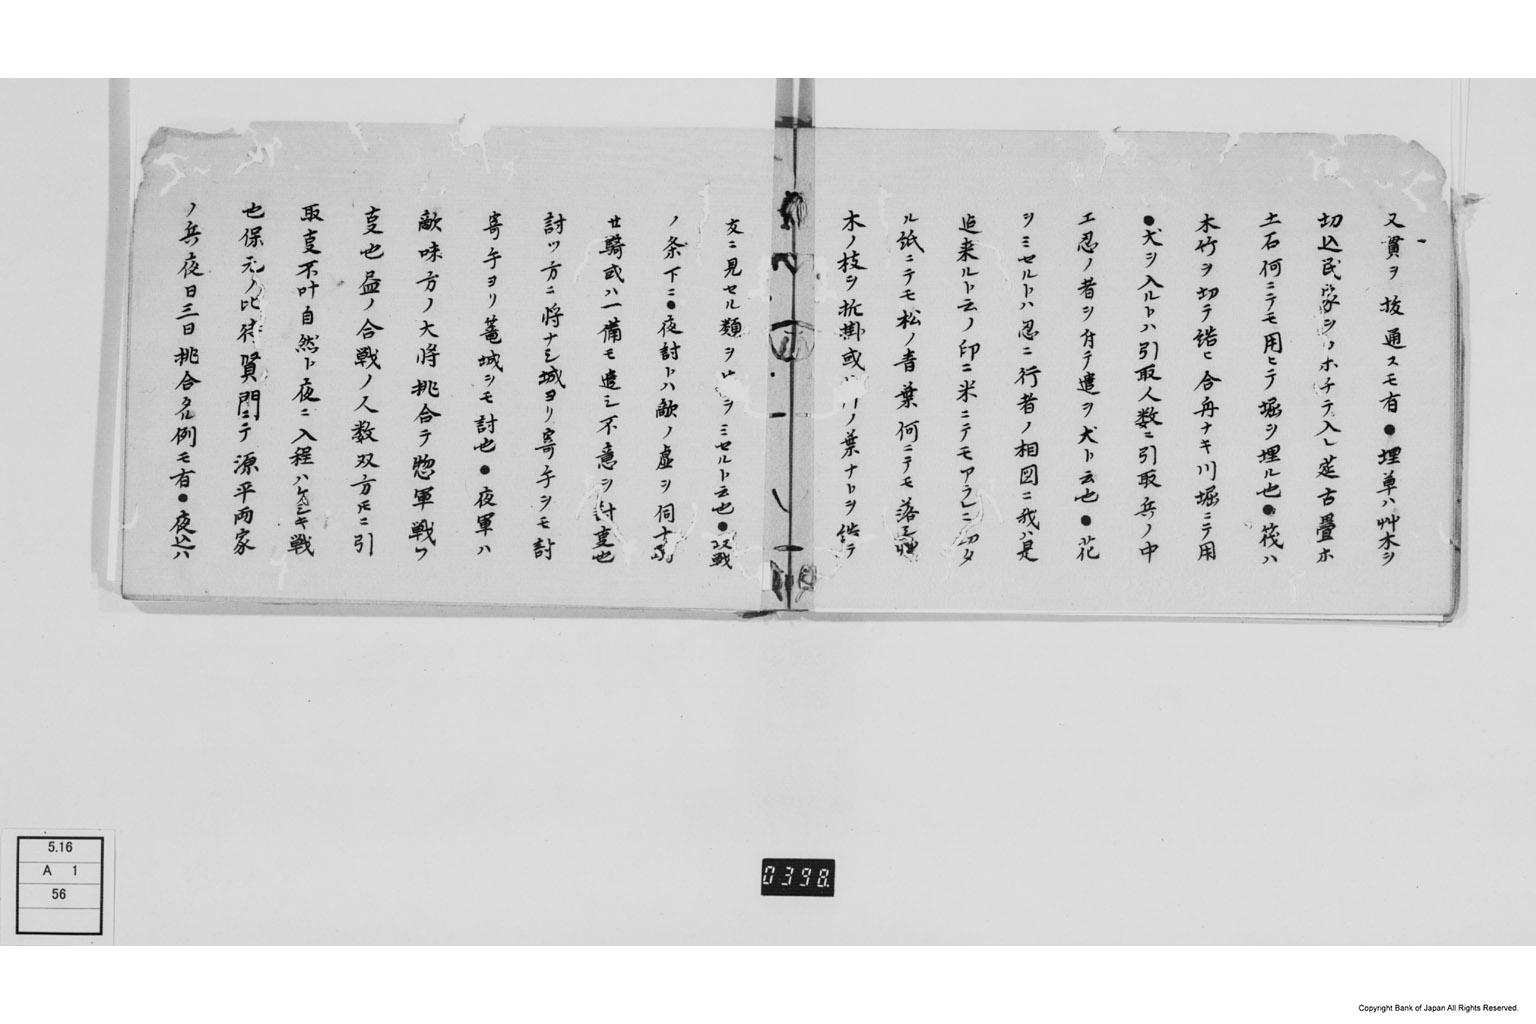 又貫ヲ抜通スモ有●埋草ハ艸木ヲ
切込民家ヲコホチテ入レ莚古畳ホ
土石何ニテモ用ヒテ堀ヲ埋ル也●筏ハ
木竹ヲ切テ結ヒ合舟ナキ川堀ニテ用
●犬ヲ入ルトハ引取人数ニ引取兵ノ中
エ忍ノ者ヲ付テ遣ヲ犬ト云也●花
ヲミセルトハ忍ニ行者ノ相図ニ我ハ是
迄来ルト云ノ印ニ米ニテモアラレニ切タ
ル紙ニテモ松ノ青葉何ニテモ落
木ノ枝ヲ折掛或ハ ノ葉ナトヲ結テ
友ニ見セル類ヲ ヲミセルト云也●双戦
ノ条下ニ●夜討トハ敵ノ虚ヲ伺十
廿騎或ハ一備モ遣シ不意ヲ討事也
討ツ方ニ将ナシ城ヨリ寄手ヲモ討
寄手ヨリ篭城ヲモ討也●夜軍ハ
敵味方ノ大将挑合テ惣軍戦フ
事也昼ノ合戦ノ人数双方ニ引
取事不叶自然ト夜ニ入程ハケシキ戦
也保元ノ比待賢門ニテ源平両家
ノ兵夜日三日挑合タル例モ有●夜込ハ
5.16
A 1
56
0398
Copyright Bank of Japan All Rights Reserved.